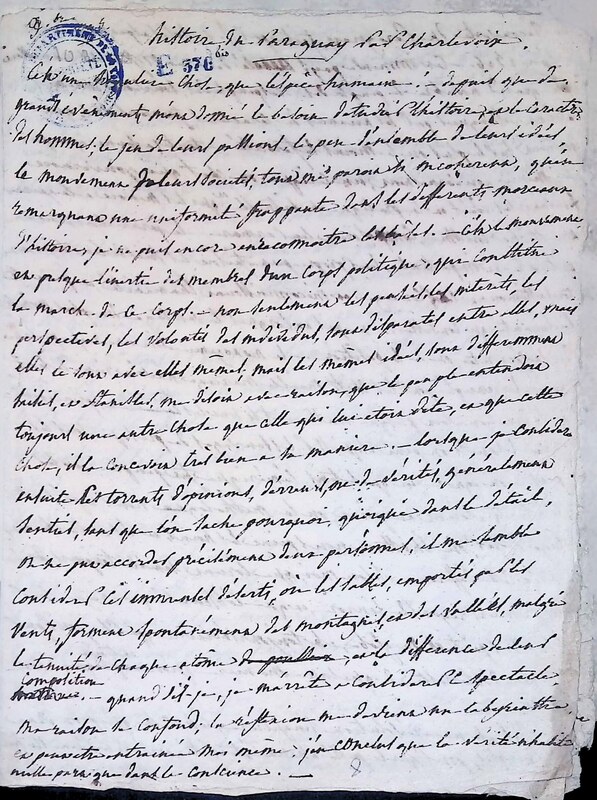 histoire du Paraguay par Charlevoix.
DEPARTEMENT DE LA
E 376 63
C'est un singulier chose, que l'espèce humaine ! - depuis que de
grands evénements m'ont donné le besoin d'étudier l'histoire, et le caractère
des hommes, le jeu de leurs passions, le peu d'ensemble de leurs idées,
le mouvement de leurs societés, tout m'a paru si incohérent, qu'en
remarquant une uniformité frappante dans les differents morceaux
d'histoire, je ne puis encore en reconnoitre les - c'est le mouvement
et presque l'inertie des membres d'un corps politique, qui constitue
la marche de ce corps. - non seulement les pensées, les intérêts, les
perspectives, les volontés des individus, sont disparates entre elles, mais
elles le sont avec elles mêmes, mais les mêmes idées, sont differemment
me disoit avec raison, que le peuple entendoit
toujours une autre chose que celle qui lui etoit dite, et que cette
chose, il la concevoit très bien a sa manière. - lorsque je considere
ensuite les torrents d'opinions, d'erreurs, ou de vérités, généralement
senties, sans que l'on sache pourquoi, quoique dans le détail,
on ne put accorder précisément deux personnes, il me semble
considerer ces immenses deserts, où les sables, emportés par les
vents, forment spontanément des montagnes, et des vallées, malgré
la tenuité de chaque atôme et la différence de leur
composition
- quand dis-je, je m'arrête a considerer ce spectacle
ma raison se confond, la réflexion me devient un labyrinthe
et peut etre entraine moi même : j'en conclus que la vérité n'habite
nulle part que dans la conscience. -